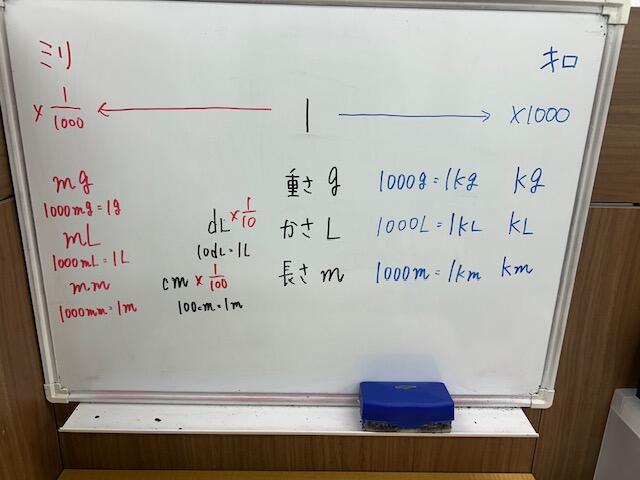 ミリ
キロ
×1/1000 ← 1 → ×1000
mg
重さ g 1000g=1kg kg
1000mg=1g
dL ×1/10
かさ L 1000L=1kL kL
mL
10dL=1L
1000mL=1L
cm ×1/100
長さ m 1000m=1km km
mm
100cm=1m
1000mm=1m